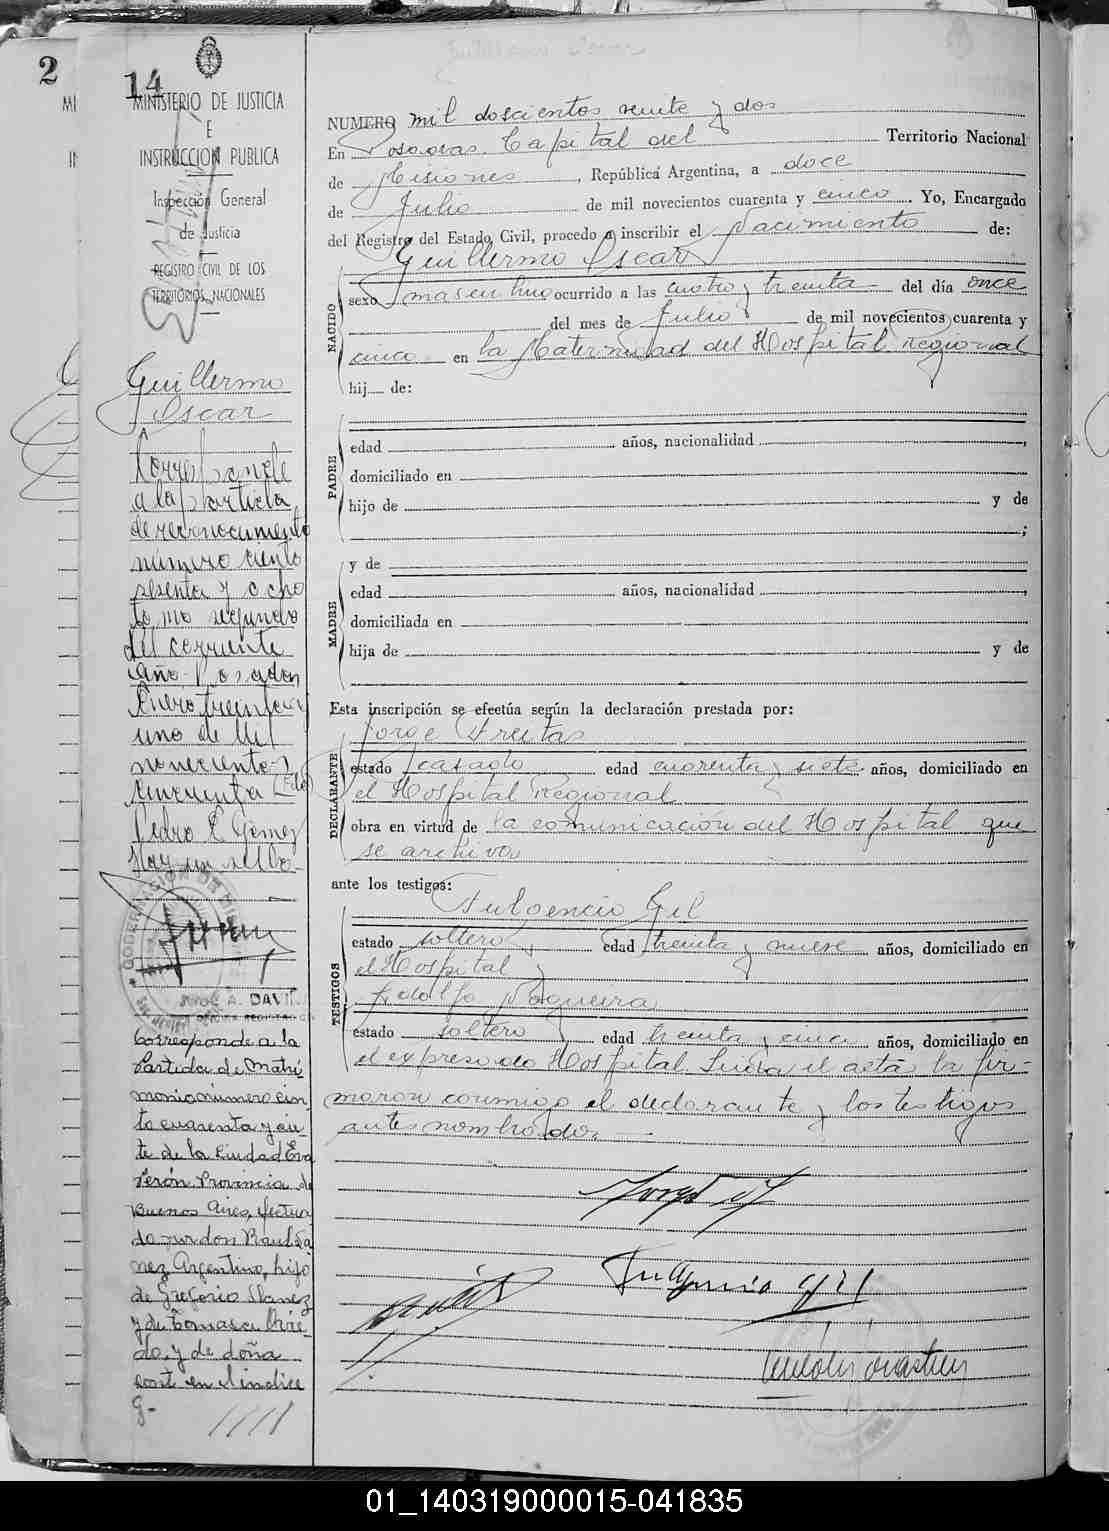 2
14
MINISTERIO DE JUSTICIA
E
INSTRUCCIÓN PUBLICA
Inspección General
de Justicia
REGISTRO CIVIL DE LOS
TERRITORIOS NACIONALES
Guillermo
Oscar
Corresponde
a la partida
de reconocimiento
número ciento
sesenta y ocho
tomo segundo
del corriente
año. Posadas
Enero treinta y
uno de mil
novecientos
cincuenta
Pedro E. Gómez
Hay un sello.
GOBERNACION DE
A. DAVI
Corresponde a la
Partida de Matri
monio número cien
to cuarenta y sie
te de la Ciudad Eva
Perón Provincia de
Buenos Aires, efectua
do por don Raul
nez Argentino, hijo
de Gregorio
y de Tomasa
do, y de doña
cont. en el indice
NUMERO mil doscientos veinte y dos
En Posadas. Capital del Territorio Nacional
de Misiones, República Argentina, a doce
de Julio de mil novecientos cuarenta y cinco. Yo, Encargado
del Registro del Estado Civil, procedo a inscribir el Nacimiento de:
Guillermo Oscar
NACIDO
sexo masculino ocurrido a las cuatro y treinta del día once
del mes de Julio de mil novecientos cuarenta y
cinco en la Maternidad del Hospital Regional
hij de:
PADRE
edad años, nacionalidad
domiciliado en
hijo de y de
;
MADRE
y de
edad años, nacionalidad
domiciliada en
hija de y de
Esta inscripción se efectúa según la declaración prestada por:
Jorge Freitas
DECLARANTE
estado casado edad cuarenta y siete años, domiciliado en
el Hospital Regional
obra en virtud de la comunicación del Hospital que
se archiva
ante los testigos:
Fulgencio Gil
TESTIGOS
estado soltero, edad treinta y nueve años, domiciliado en
el Hospital y
Adolfo Nogueira
estado soltero edad treinta y cinco años, domiciliado en
el expresado Hospital. Leida el acta, la fir-
maron conmigo el declarante y los testigos
antes nombrados.
Fulgencio Gil
01_140319000015-041835